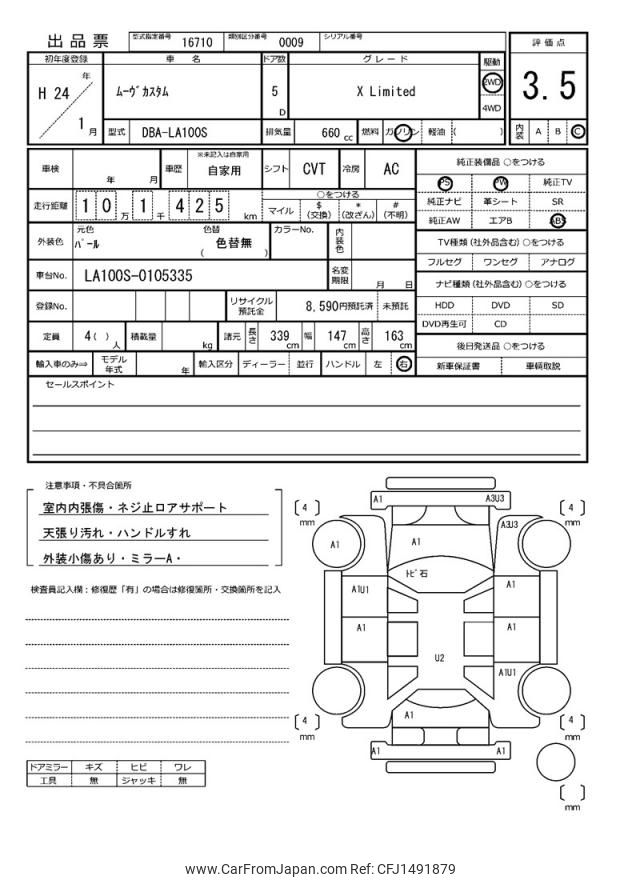 出品票 型式指定番号 16710 類別区分番号 0009 シリアル番号
評価点
3.5
内装 A B C
初年度登録 車名 ドア数 グレード 駆動
H 24 年 1 月
ﾑｰｳﾞｶｽﾀﾑ 5 D X Limited 2WD
4WD
型式 DBA-LA100S 排気量 660 cc 燃料 ガソリン 軽油 ( )
車検 年 月 車歴 ※未記入は自家用 自家用 シフト CVT 冷房 AC
走行距離 1 0 万 1 千 4 2 5 km
○をつける
マイル $ (交換) * (改ざん) # (不明)
外装色 元色 ﾊﾟｰﾙ 色替 ( 色替無 ) カラーNo. 内装色
車台No. LA100S-0105335 名変期限 月 日
登録No. リサイクル預託金 8,590円預託済 未預託
定員 4( ) 人 積載量 kg 諸元 長さ 339 cm 幅 147 cm 高さ 163 cm
輸入車のみ⇒ モデル年式 年 輸入区分 ディーラー 並行 ハンドル 左 右
純正装備品 ○をつける
PS PW 純正TV
純正ナビ 革シート SR
純正AW エアB ABS
TV種類(社外品含む)○をつける
フルセグ ワンセグ アナログ
ナビ種類(社外品含む)○をつける
HDD DVD SD
DVD再生可 CD
後日発送品 ○をつける
新車保証書 車輌取説
セールスポイント
注意事項・不具合箇所
室内内張傷・ネジ止ロアサポート
天張り汚れ・ハンドルすれ
外装小傷あり・ミラーA・
検査員記入欄：修復歴「有」の場合は修復箇所・交換箇所を記入
ドアミラー キズ ヒビ ワレ
工具 無 ジャッキ 無
A1 A3U3
4 mm 4 mm
A3U3
A1 A1
ﾄﾋﾞ石
A1U1 A1
A1 A1
U2
A1U1
A1
4 mm 4 mm
A1 A1
mm
www.CarFromJapan.com Ref: CFJ1491879